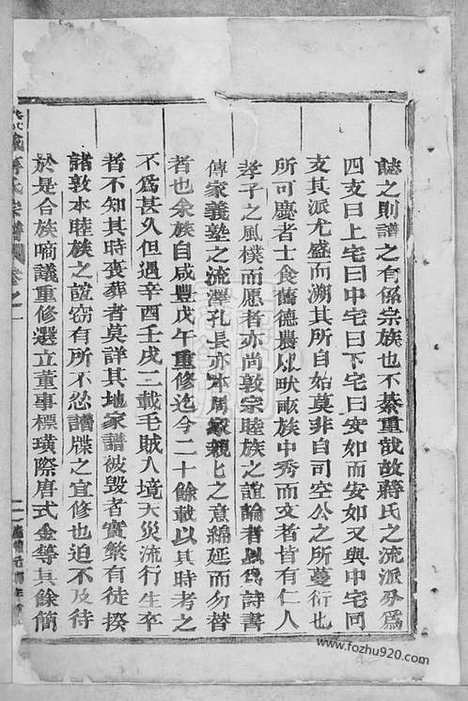 誌之則譜之有係宗族也不綦重哉故蔣氏之流派分為
四支曰上宅曰中宅曰下宅曰安如而安如又與中宅同
支其派尤盛而溯其所自始莫非自司空公之所蔓衍也
所可慶者士食舊德農服畎畝族中秀而文者皆有仁人
孝子之風樸而愿者亦尚敦宗睦族之誼論者以為詩書
傳家義塾之流澤孔長亦本周家親親之意綿延而勿替
者也余族自咸豐戊午重修迄今二十餘載以其時考之
不為甚久但遇辛酉壬戌二載毛賊入境天災流行生卒
者不知其時喪葬者莫詳其地家譜被毀者實繁有徒揆
諸敦本睦族之誼竊有所不慊譜牒之宜修也迫不及待
於是合族啇議重修選立董事標璜際唐式金等其餘簡
蔣氏宗譜
卷之一
www.fozhu920.com